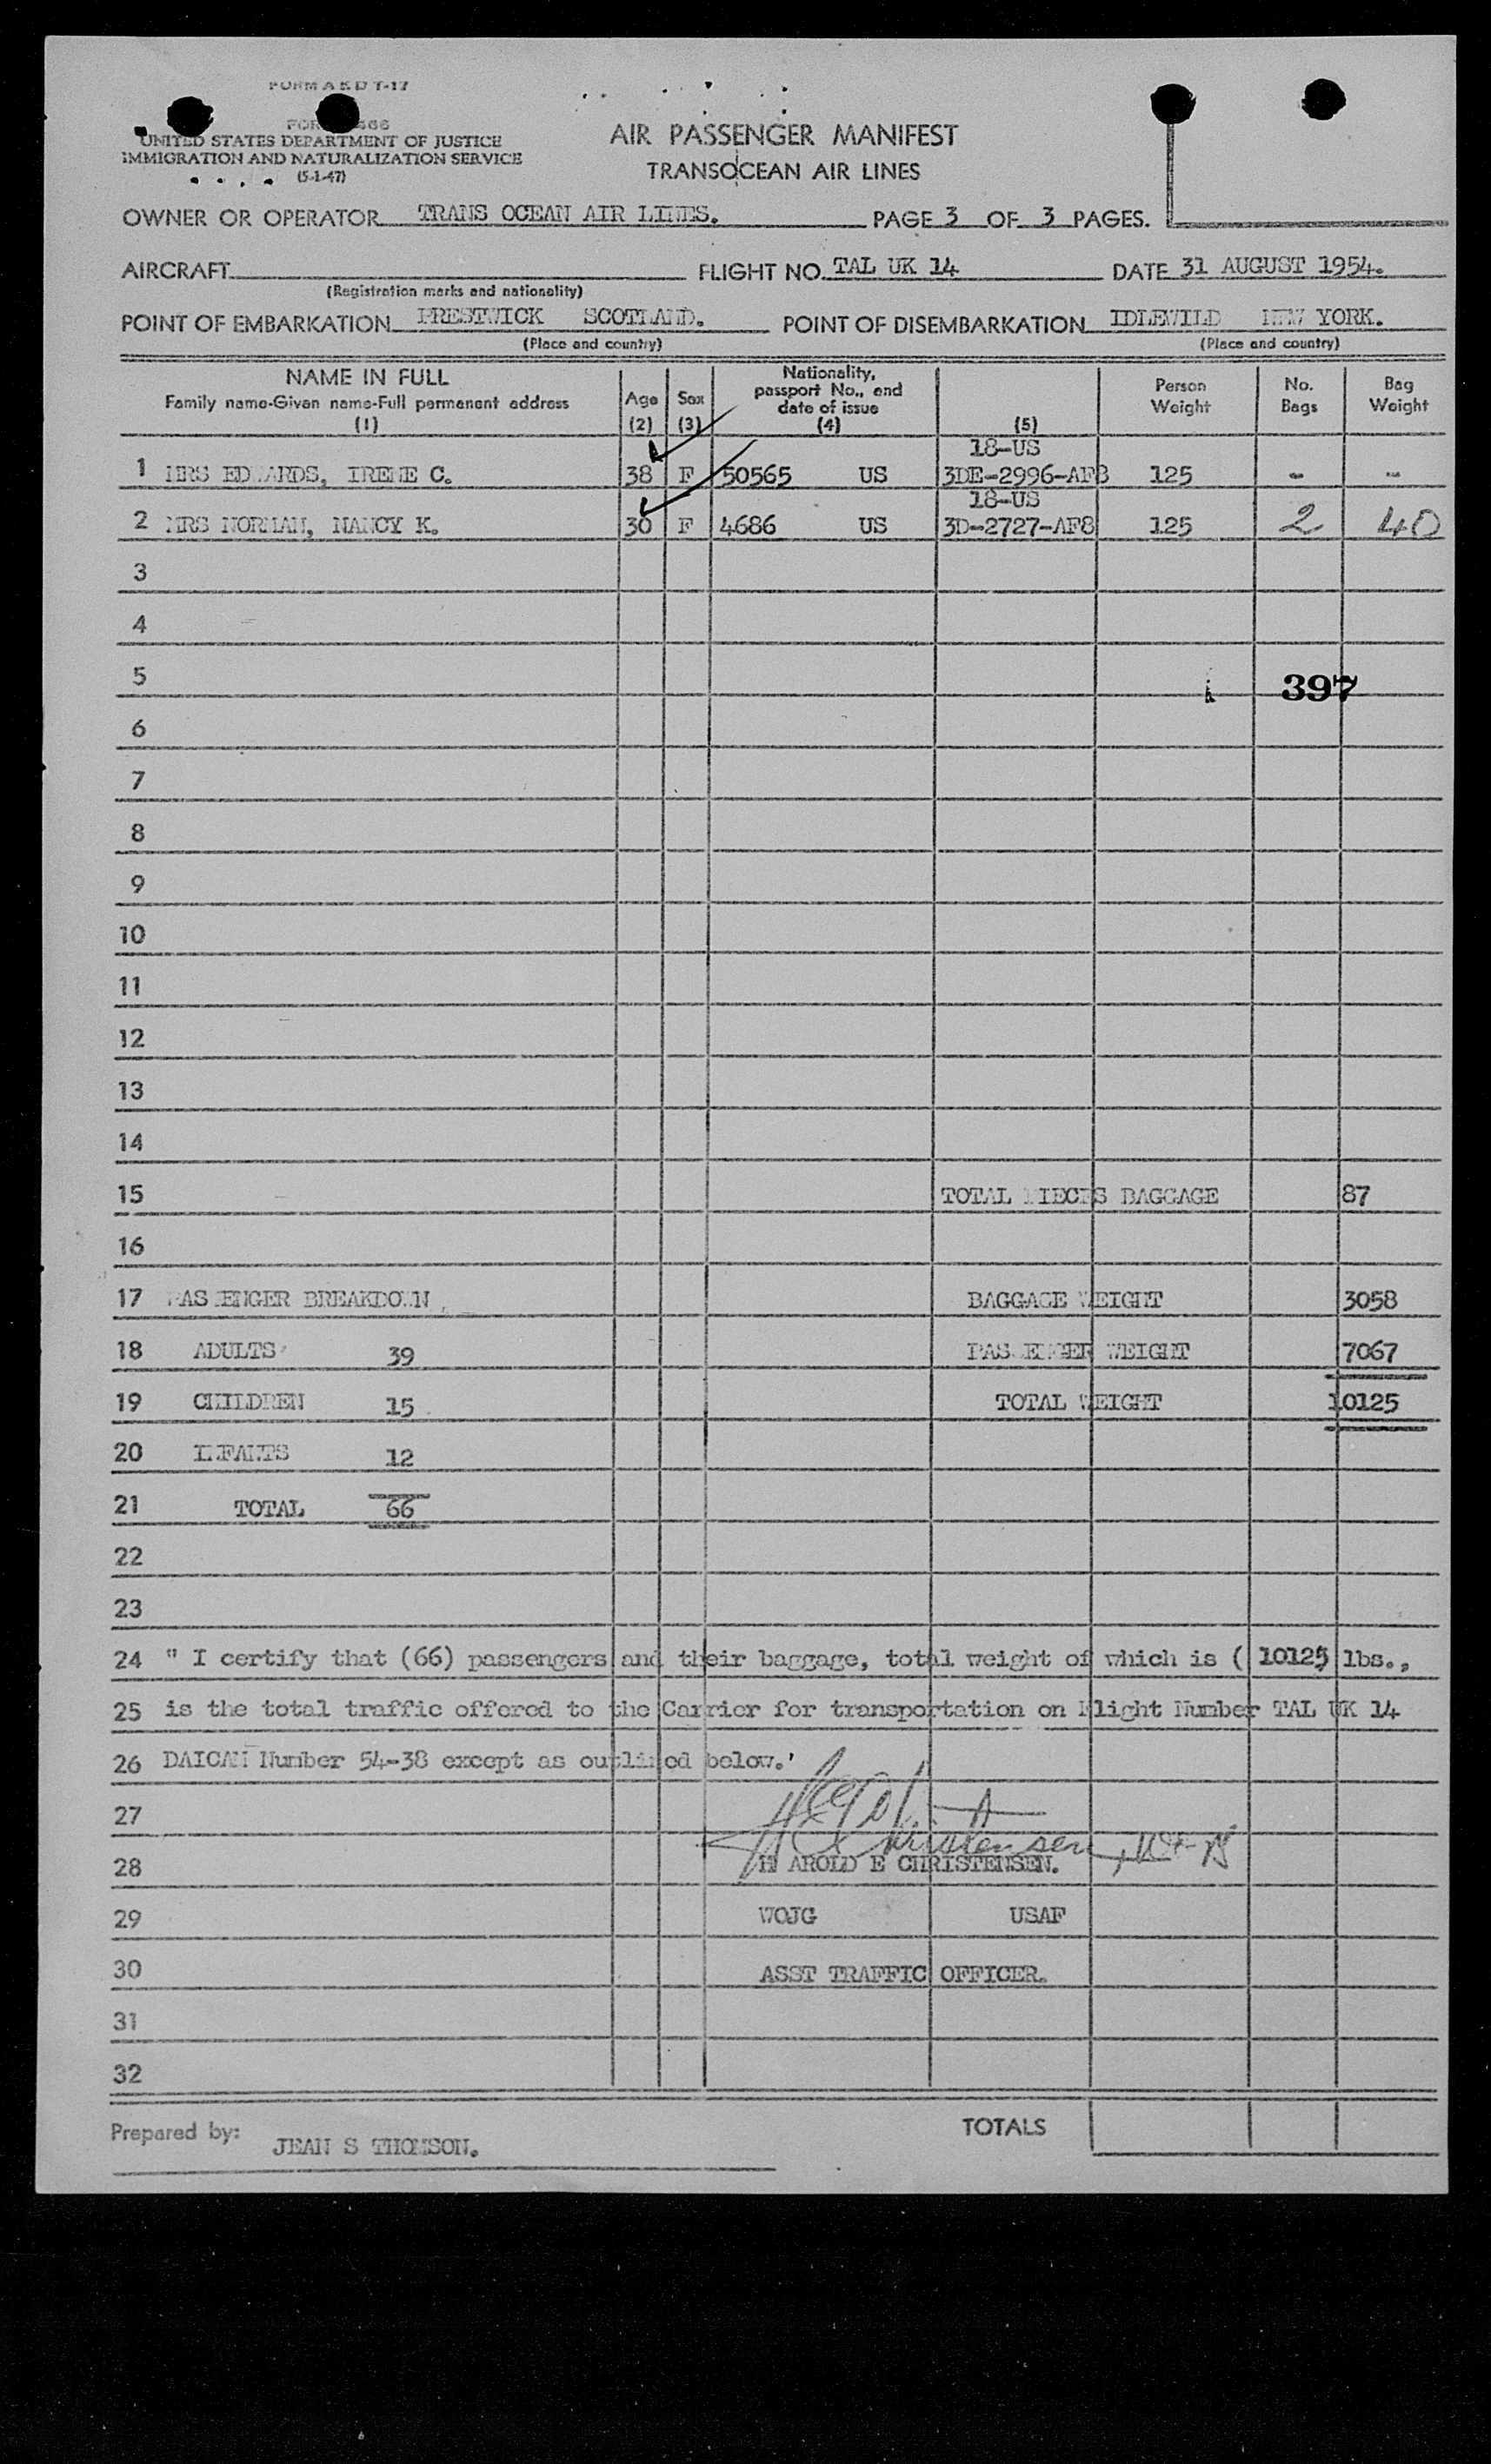 FORM A K D T-17
UNITED STATES DEPARTMENT OF JUSTICE
IMMIGRATION AND NATURALIZATION SERVICE
(5-1-47)
AIR PASSENGER MANIFEST
TRANSOCEAN AIR LINES
OWNER OR OPERATOR TRANS OCEAN AIR LINES. PAGE 3 OF 3 PAGES.
AIRCRAFT FLIGHT NO. TAL UK 14 DATE 31 AUGUST 1954.
(Registration marks and nationality)
POINT OF EMBARKATION PRESTWICK SCOTLAND. POINT OF DISEMBARKATION IDLEWILD NEW YORK.
(Place and country) (Place and country)
NAME IN FULL
Family name-Given name-Full permanent address
(1)
Age
(2)
Sex
(3)
Nationality,
passport No., and
date of issue
(4)
(5)
Person
Weight
No.
Bags
Bag
Weight
18-US
1 MRS EDWARDS, IRENE C. 38 F 50565 US 3DE-2996-AF8 125 - -
18-US
2 MRS NORMAN, NANCY K. 30 F 4686 US 3D-2727-AF8 125 2 40
3
4
5 397
6
7
8
9
10
11
12
13
14
15 TOTAL PIECES BAGGAGE 87
16
17 PASSENGER BREAKDOWN BAGGAGE WEIGHT 3058
18 ADULTS 39 PASSENGER WEIGHT 7067
19 CHILDREN 15 TOTAL WEIGHT 10125
20 INFANTS 12
21 TOTAL 66
22
23
24 " I certify that (66) passengers and their baggage, total weight of which is ( 10125 lbs.,
25 is the total traffic offered to the Carrier for transportation on Flight Number TAL UK 14
26 DAICAN Number 54-38 except as outlined below.'
27
28 HAROLD E CHRISTENSEN.
29 WOJG USAF
30 ASST TRAFFIC OFFICER.
31
32
Prepared by: JEAN S THOMSON. TOTALS